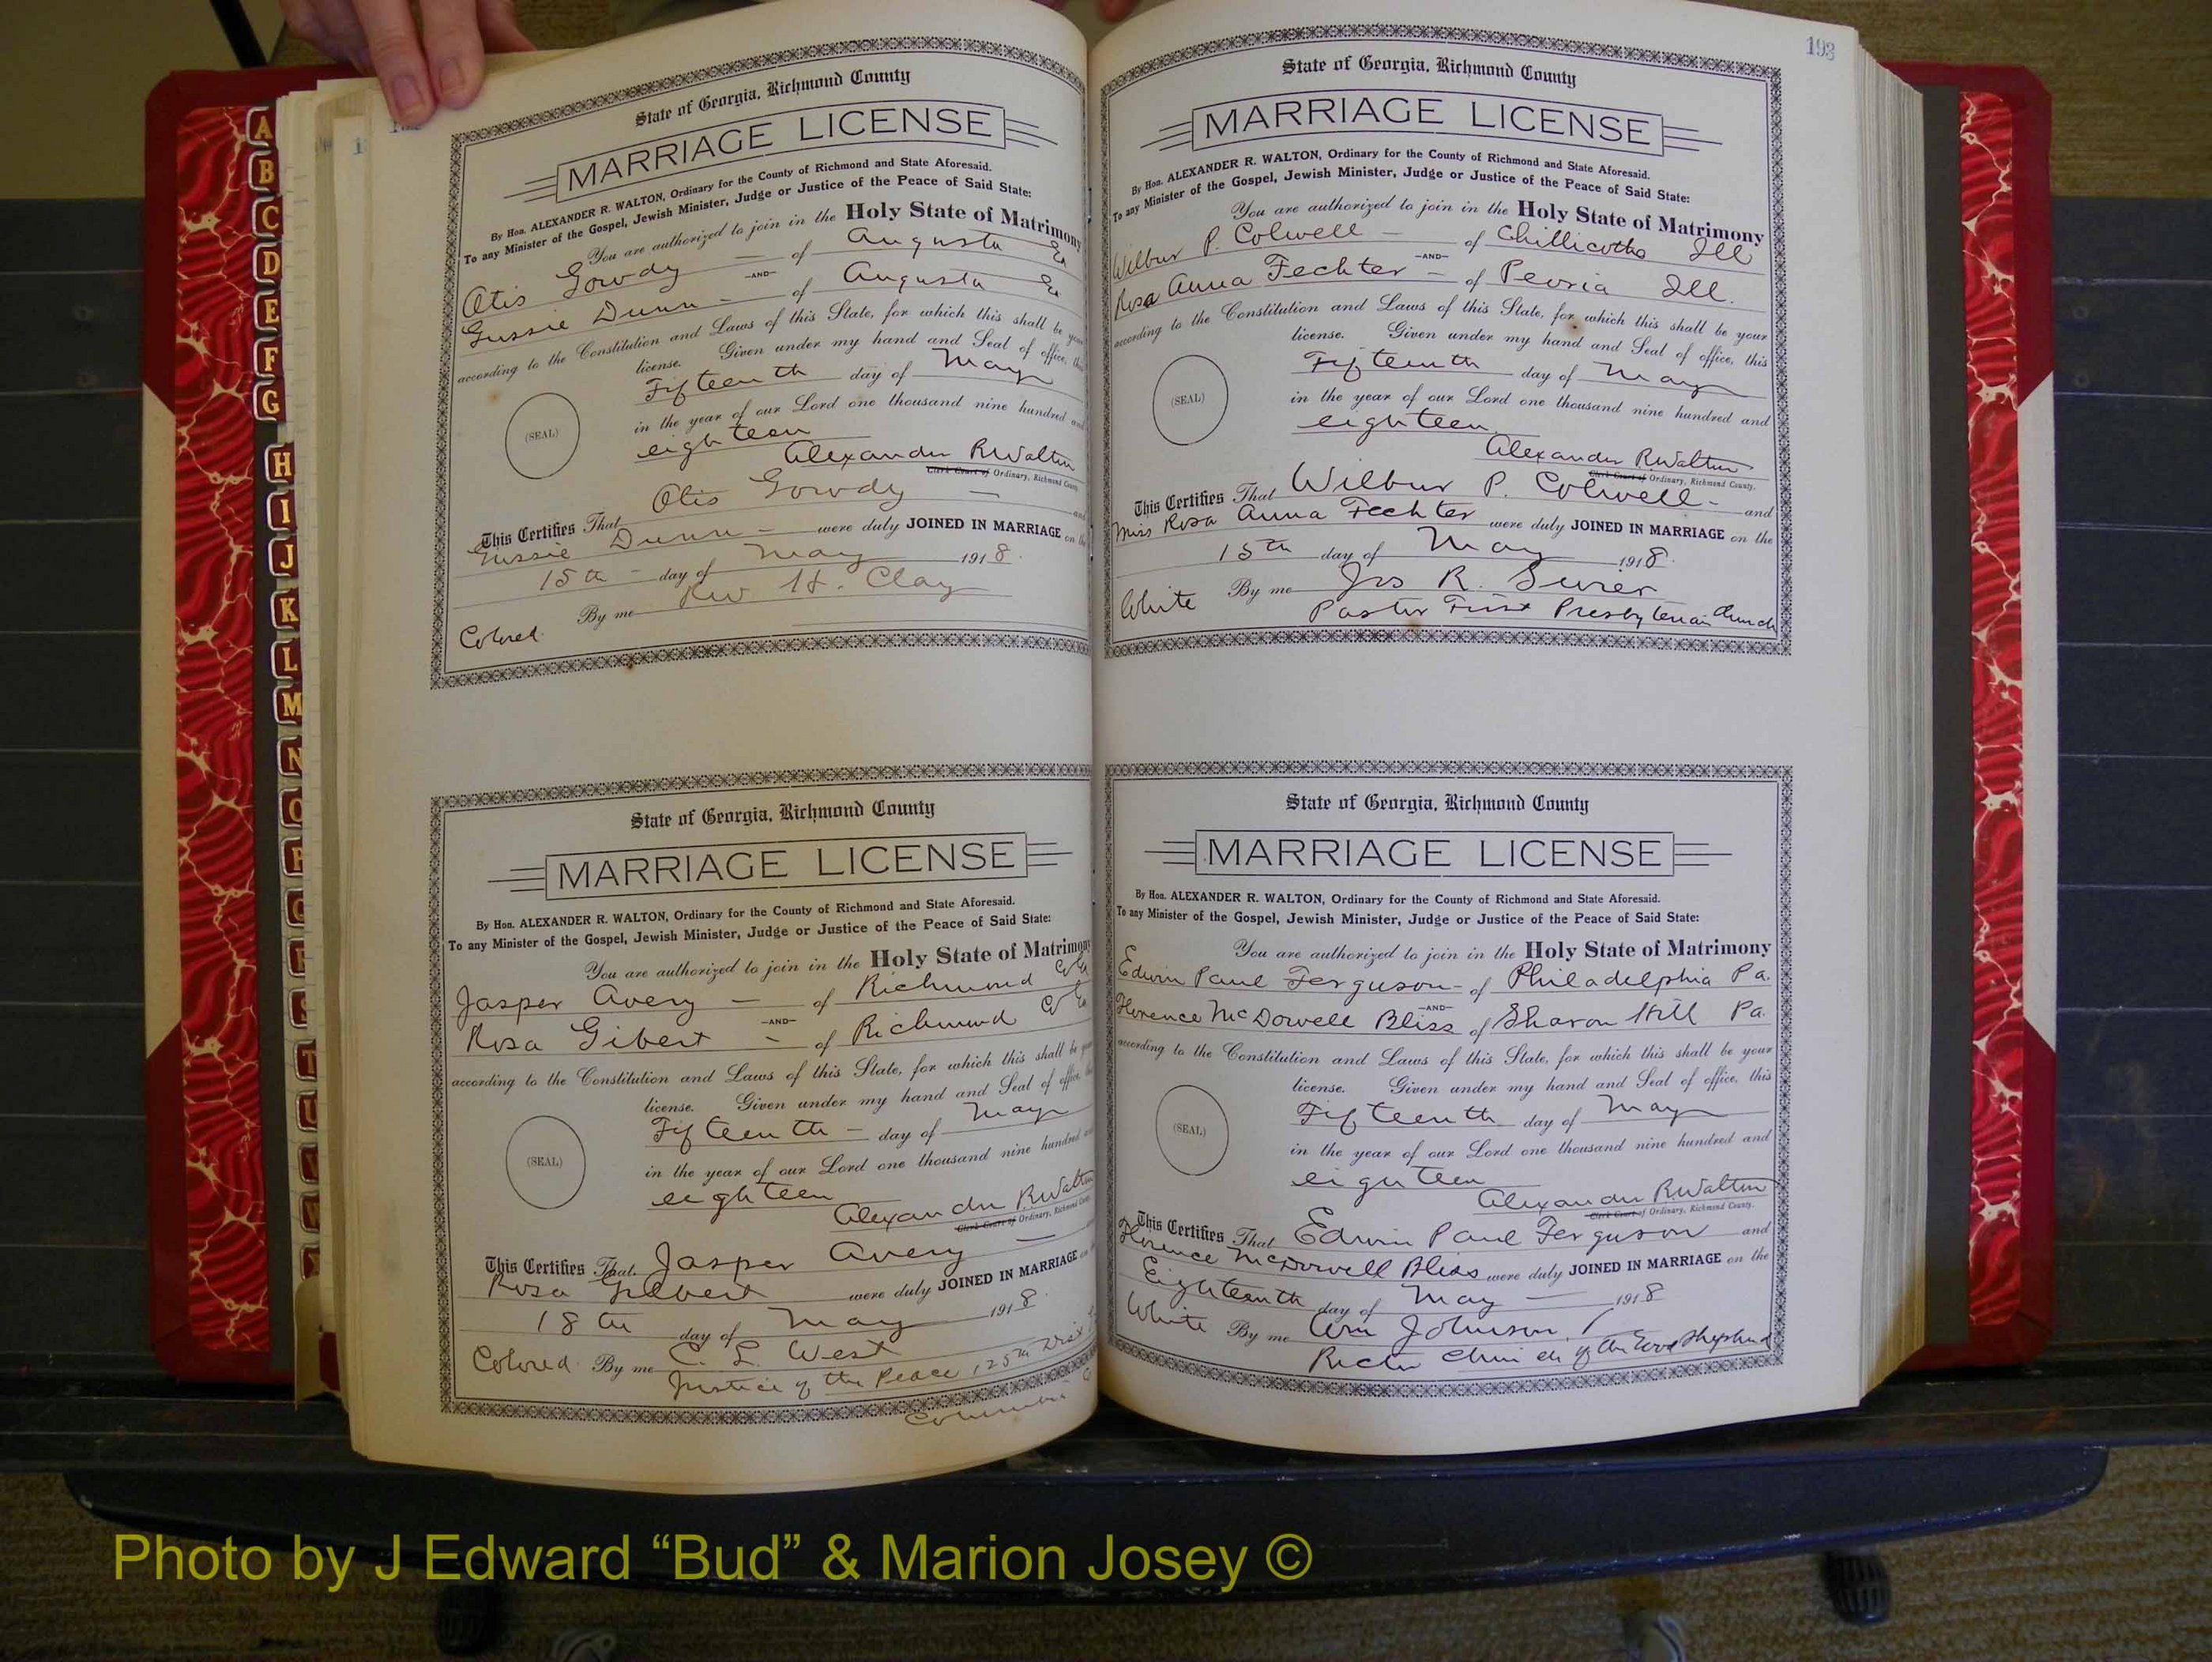 State of Georgia, Richmond County
MARRIAGE LICENSE
By Hon. ALEXANDER R. WALTON, Ordinary for the County of Richmond and State Aforesaid.
To any Minister of the Gospel, Jewish Minister, Judge or Justice of the Peace of Said State:
You are authorized to join in the Holy State of Matrimony
Otis Gowdy — of Augusta Ga
-AND-
Gussie Dunn — of Augusta Ga
according to the Constitution and Laws of this State, for which this shall be your
license. Given under my hand and Seal of office, this
Fifteenth day of May
(SEAL)
in the year of our Lord one thousand nine hundred and
eighteen
Alexander R Walton
Clerk Court of Ordinary, Richmond County.
This Certifies That Otis Gowdy — and
Gussie Dunn — were duly JOINED IN MARRIAGE on the
15th — day of May 1918.
By me Rev H. Clay
Colored.
State of Georgia, Richmond County
MARRIAGE LICENSE
By Hon. ALEXANDER R. WALTON, Ordinary for the County of Richmond and State Aforesaid.
To any Minister of the Gospel, Jewish Minister, Judge or Justice of the Peace of Said State:
You are authorized to join in the Holy State of Matrimony
Jasper Avery — of Richmond Co Ga
-AND-
Rosa Gibert — of Richmond Co Ga
according to the Constitution and Laws of this State, for which this shall be your
license. Given under my hand and Seal of office, this
Fifteenth — day of May
(SEAL)
in the year of our Lord one thousand nine hundred and
eighteen
Alexander R Walton
Clerk Court of Ordinary, Richmond County.
This Certifies That Jasper Avery —
Rosa Gilbert were duly JOINED IN MARRIAGE on the
18th day of May 1918.
Colored. By me C. L. West
Justice of the Peace, 125th Dist
Columbia
193
State of Georgia, Richmond County
MARRIAGE LICENSE
By Hon. ALEXANDER R. WALTON, Ordinary for the County of Richmond and State Aforesaid.
To any Minister of the Gospel, Jewish Minister, Judge or Justice of the Peace of Said State:
You are authorized to join in the Holy State of Matrimony
Wilbur P. Colwell — of Chillicothe Ill
-AND-
Rosa Anna Fechter — of Peoria Ill.
according to the Constitution and Laws of this State, for which this shall be your
license. Given under my hand and Seal of office, this
Fifteenth day of May
(SEAL)
in the year of our Lord one thousand nine hundred and
eighteen
Alexander R Walton
Clerk Court of Ordinary, Richmond County.
This Certifies That Wilbur P. Colwell — and
Miss Rosa Anna Fechter were duly JOINED IN MARRIAGE on the
15th day of May 1918.
White By me Jos R. Sevier
Pastor First Presbyterian Church
State of Georgia, Richmond County
MARRIAGE LICENSE
By Hon. ALEXANDER R. WALTON, Ordinary for the County of Richmond and State Aforesaid.
To any Minister of the Gospel, Jewish Minister, Judge or Justice of the Peace of Said State:
You are authorized to join in the Holy State of Matrimony
Edwin Paul Ferguson — of Philadelphia Pa.
-AND-
Florence McDowell Bliss of Sharon Hill Pa.
according to the Constitution and Laws of this State, for which this shall be your
license. Given under my hand and Seal of office, this
Fifteenth day of May
(SEAL)
in the year of our Lord one thousand nine hundred and
eighteen
Alexander R Walton
Clerk Court of Ordinary, Richmond County.
This Certifies That Edwin Paul Ferguson and
Florence McDowell Bliss were duly JOINED IN MARRIAGE on the
Eighteenth day of May — 1918
White By me Wm Johnson
Rector Church of the Good Shepherd
A
B
C
D
E
F
G
H
I
J
K
L
M
N
O
P
Q
R
S
T
U
V
W
Photo by J Edward “Bud” & Marion Josey ©